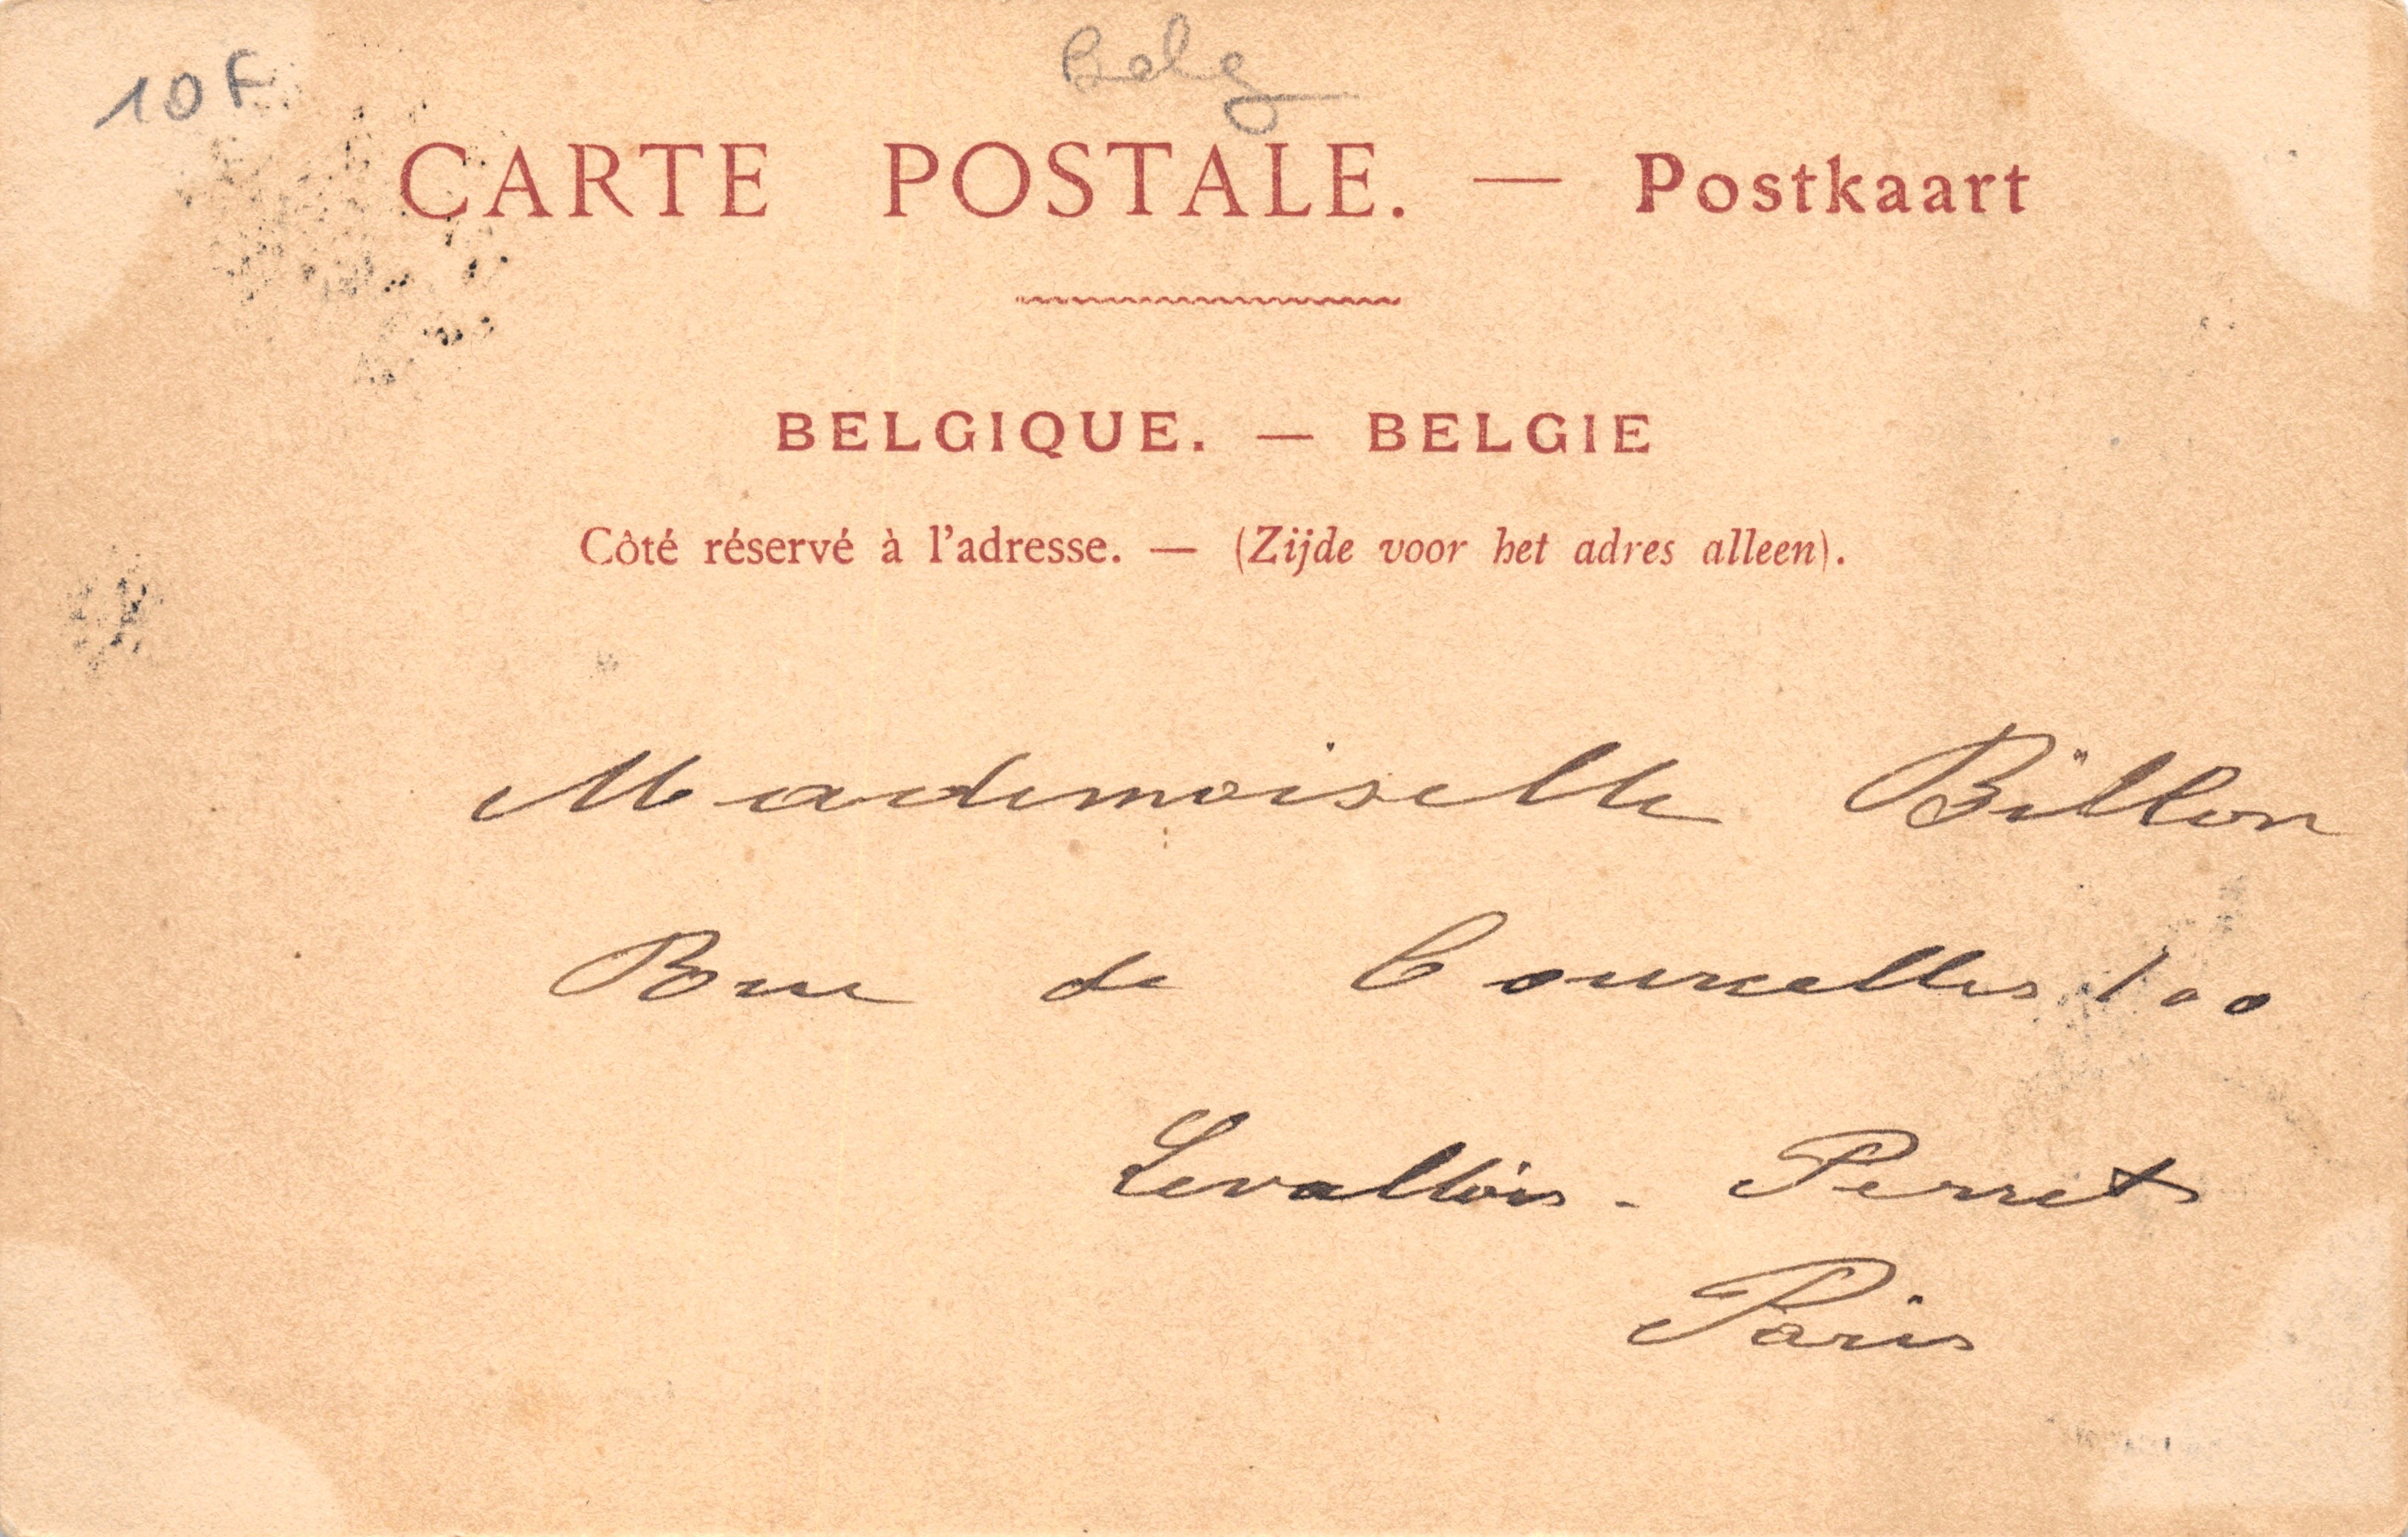 10 F
Belg
CARTE POSTALE. — Postkaart
BELGIQUE. — BELGIE
Côté réservé à l'adresse. — (Zijde voor het adres alleen).
Mademoiselle Billon
Rue de Courcelles 100
Levallois - Perret
Paris